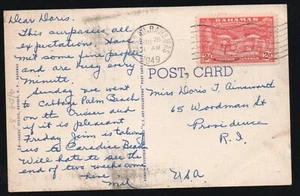 Dear Doris.
This surpasses all
expectations. Have
met some fine people
and are busy every
minute.
Sunday we went
to Cabbage Palm Beach
on the Cruiser and
if it is pleasant
Friday Jim is taking
us to Paradise Beach
Will hate to see the
end of two weeks come
here
Mil
1949
BAHAMAS
POST CARD
Miss Doris T. Ainsworth
65 Woodman St
Providence
R. I.
USA